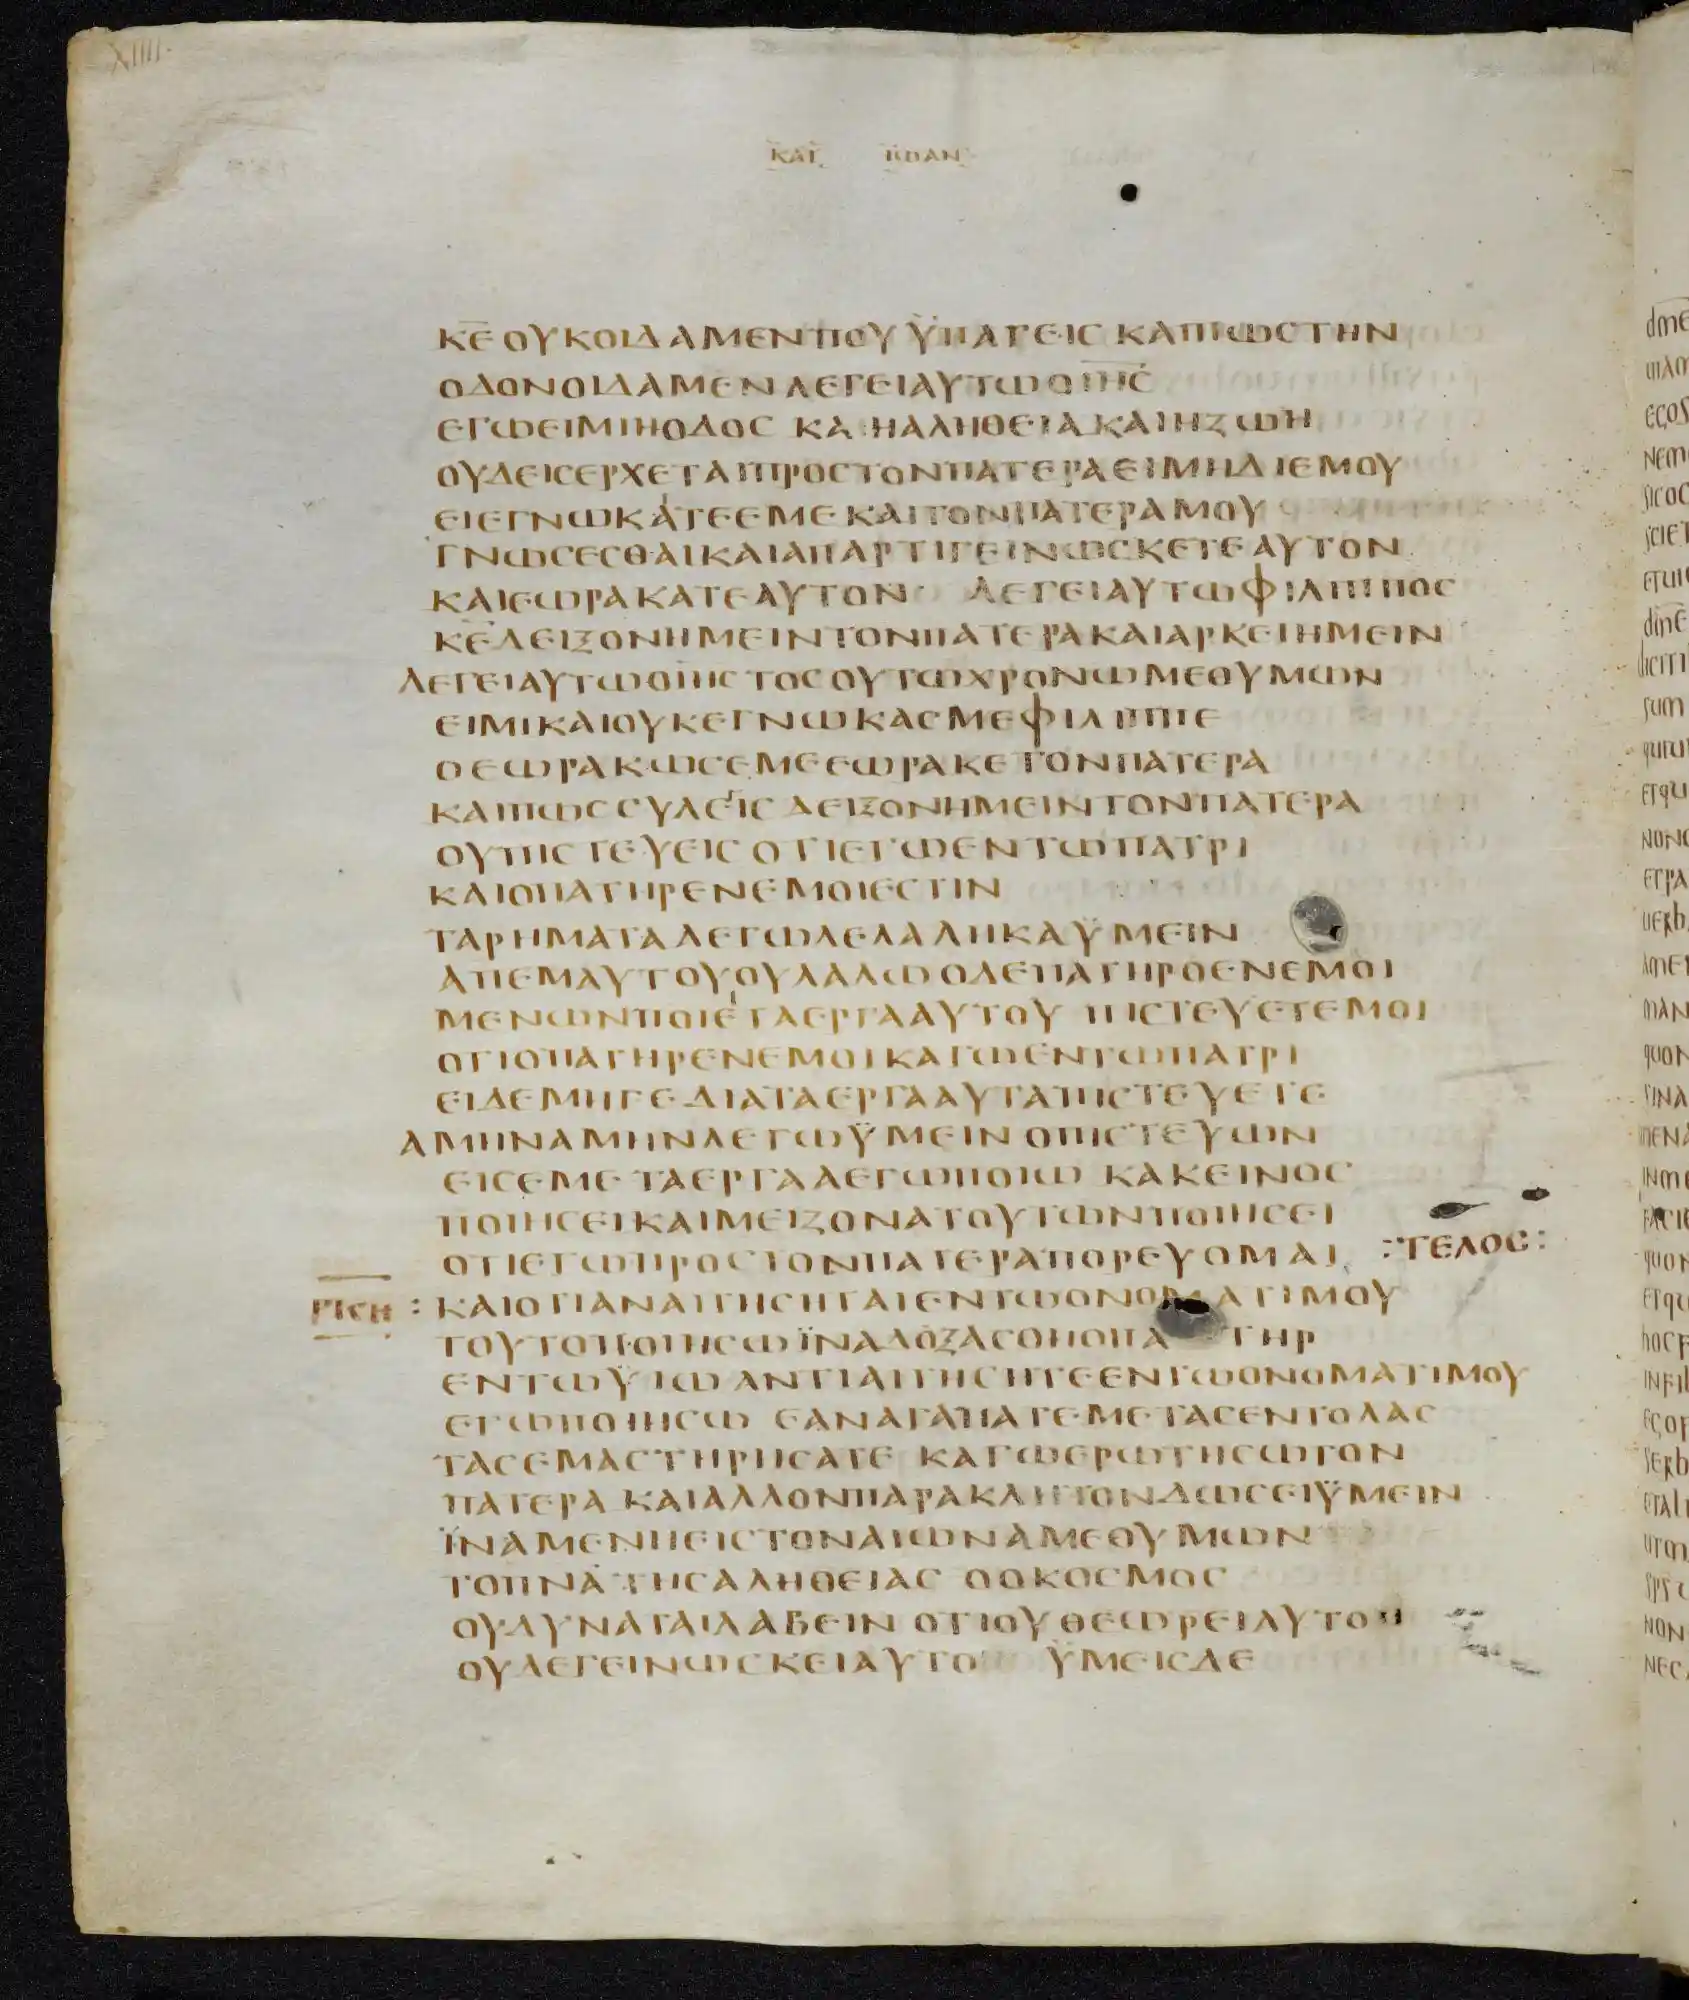 XIIII·
ΚΑΤ ΙΩΑΝ
Κ̅Ε̅ ΟΥΚΟΙΔΑΜΕΝΠΟΥ ΫΠΑΓΕΙΣ ΚΑΙΠΩΣΤΗΝ
ΟΔΟΝΟΙΔΑΜΕΝ ΛΕΓΕΙΑΥΤΩΟ Ι̅Η̅Σ̅
ΕΓΩΕΙΜΙΗΟΔΟΣ ΚΑΙΗΑΛΗΘΕΙΑΚΑΙΗΖΩΗ
ΟΥΔΕΙΣΕΡΧΕΤΑΙΠΡΟΣΤΟΝΠΑΤΕΡΑΕΙΜΗΔΙΕΜΟΥ
ΕΙΕΓΝΩΚΑΤΕΕΜΕ ΚΑΙΤΟΝΠΑΤΕΡΑΜΟΥ
ΓΝΩΣΕΣΘΑΙΚΑΙΑΠΑΡΤΙΓΕΙΝΩΣΚΕΤΕΑΥΤΟΝ
ΚΑΙΕΩΡΑΚΑΤΕΑΥΤΟΝ ΛΕΓΕΙΑΥΤΩΦΙΛΙΠΠΟΣ
Κ̅Ε̅ΔΕΙΞΟΝΗΜΕΙΝΤΟΝΠΑΤΕΡΑΚΑΙΑΡΚΕΙΗΜΕΙΝ
ΛΕΓΕΙΑΥΤΩΟΙΗΣ ΤΟΣΟΥΤΩΧΡΟΝΩΜΕΘΥΜΩΝ
ΕΙΜΙΚΑΙΟΥΚΕΓΝΩΚΑΣΜΕΦΙΛΙΠΠΕ
ΟΕΩΡΑΚΩΣΕΜΕΕΩΡΑΚΕΤΟΝΠΑΤΕΡΑ
ΚΑΙΠΩΣΣΥΛΕΓΙΣ ΔΕΙΞΟΝΗΜΕΙΝΤΟΝΠΑΤΕΡΑ
ΟΥΠΙΣΤΕΥΕΙΣ ΟΤΙΕΓΩΕΝΤΩΠΑΤΡΙ
ΚΑΙΟΠΑΤΗΡΕΝΕΜΟΙΕΣΤΙΝ
ΤΑΡΗΜΑΤΑΑΕΓΩΛΕΛΑΛΗΚΑΫΜΕΙΝ
ΑΠΕΜΑΥΤΟΥΟΥΛΑΛΩ ΟΔΕΠΑΤΗΡΟΕΝΕΜΟΙ
ΜΕΝΩΝΠΟΙΕΙΤΑΕΡΓΑΑΥΤΟΥ ΠΙΣΤΕΥΕΤΕΜΟΙ
ΟΤΙΟΠΑΤΗΡΕΝΕΜΟΙΚΑΓΩΕΝΤΩΠΑΤΡΙ
ΕΙΔΕΜΗΓΕΔΙΑΤΑΕΡΓΑΑΥΤΑΠΙΣΤΕΥΕΤΕ
ΑΜΗΝΑΜΗΝΛΕΓΩΫΜΕΙΝ ΟΠΙΣΤΕΥΩΝ
ΕΙΣΕΜΕ ΤΑΕΡΓΑΑΕΓΩΠΟΙΩ ΚΑΚΕΙΝΟΣ
ΠΟΙΗΣΕΙΚΑΙΜΕΙΖΟΝΑΤΟΥΤΩΝΠΟΙΗΣΕΙ
ΟΤΙΕΓΩΠΡΟΣΤΟΝΠΑΤΕΡΑΠΟΡΕΥΟΜΑΙ :ΤΕΛΟΣ:
ΚΑΙΟΤΙΑΝΑΙΤΗΣΗΤΑΙΕΝΤΩΟΝΟΜΑΤΙΜΟΥ
ΤΟΥΤΟΠΟΙΗΣΩΪΝΑΔΟΞΑΣΘΗΟΠΑ ΤΗΡ
ΕΝΤΩΫΙΩ ΑΝΤΙΑΙΤΗΣΗΤΕΕΝΤΩΟΝΟΜΑΤΙΜΟΥ
ΕΓΩΠΟΙΗΣΩ ΕΑΝΑΓΑΠΑΤΕΜΕΤΑΣΕΝΤΟΛΑΣ
ΤΑΣΕΜΑΣΤΗΡΗΣΑΤΕ ΚΑΓΩΕΡΩΤΗΣΩΤΟΝ
ΠΑΤΕΡΑ ΚΑΙΑΛΛΟΝΠΑΡΑΚΛΗΤΟΝΔΩΣΕΙΫΜΕΙΝ
ΪΝΑΜΕΝΗΕΙΣΤΟΝΑΙΩΝΑΜΕΘΥΜΩΝ
ΤΟΠΝΑ ΤΗΣΑΛΗΘΕΙΑΣ ΟΟΚΟΣΜΟΣ
ΟΥΔΥΝΑΤΑΙΛΑΒΕΙΝ ΟΤΙΟΥΘΕΩΡΕΙΑΥΤΟΝ
ΟΥΔΕΓΕΙΝΩΣΚΕΙΑΥΤΟ ΫΜΕΙΣΔΕ